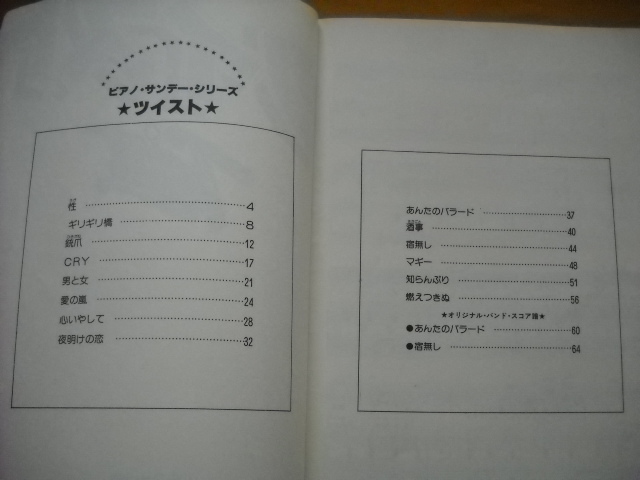 ピアノ・サンデー・シリーズ
★ツイスト★
性 4
ギリギリ橋 8
銃爪 12
CRY 17
男と女 21
愛の嵐 24
心いやして 28
夜明けの恋 32
あんたのバラード 37
酒事 40
宿無し 44
マギー 48
知らんぷり 51
燃えつきぬ 56
★オリジナル・バンド・スコア譜★
●あんたのバラード 60
●宿無し 64